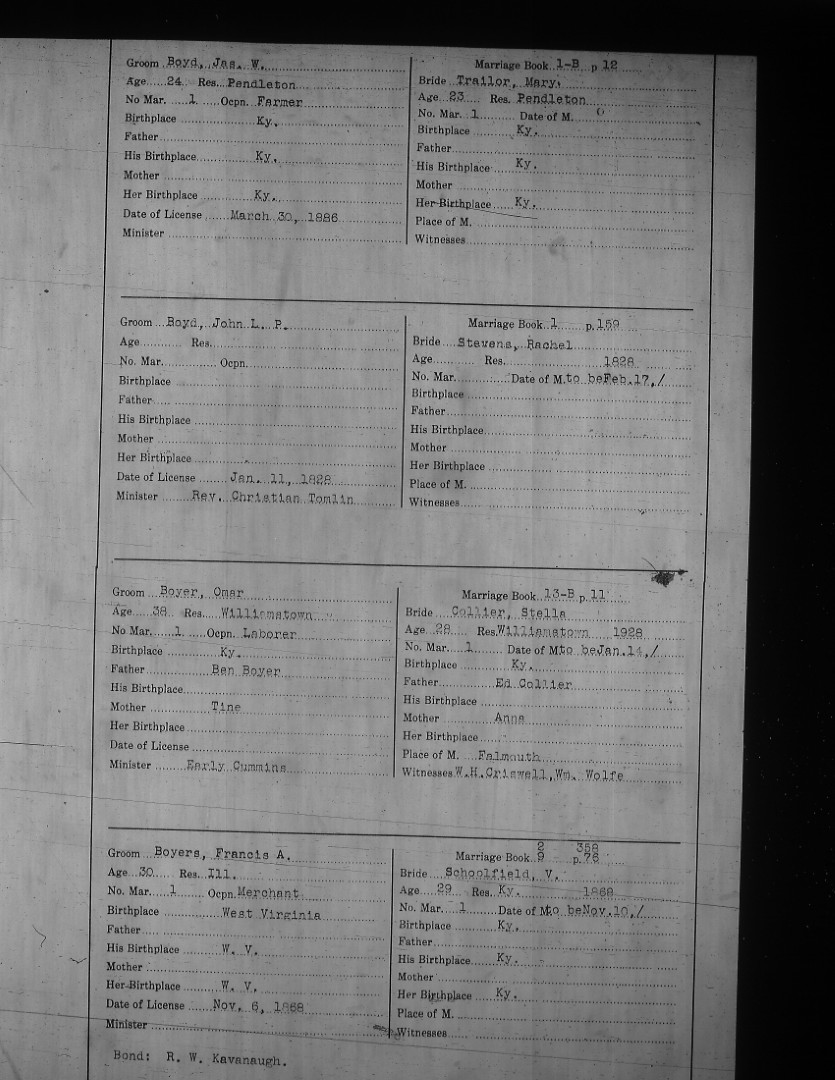 Groom Boyd, Jas. W.
Age 24 Res. Pendleton
No Mar. 1 Ocpn. Farmer
Birthplace Ky.
Father
His Birthplace Ky.
Mother
Her Birthplace Ky.
Date of License March 30, 1886
Minister
Marriage Book 1-B p 12
Bride Trailor, Mary.
Age 23 Res. Pendleton
No. Mar. 1 Date of M. 0
Birthplace Ky.
Father
His Birthplace Ky.
Mother
Her Birthplace Ky.
Place of M.
Witnesses
Groom Boyd, John L. P.
Age Res.
No. Mar. Ocpn.
Birthplace
Father
His Birthplace
Mother
Her Birthplace
Date of License Jan. 11, 1828
Minister Rev. Christian Tomlin
Marriage Book 1 p. 159
Bride Stevens, Rachel
Age Res. 1828
No. Mar. Date of M. to be Feb. 17, /
Birthplace
Father
His Birthplace
Mother
Her Birthplace
Place of M.
Witnesses
Groom Boyer, Omar
Age 38 Res. Williamstown
No Mar. 1. Ocpn. Laborer
Birthplace Ky.
Father Ben Boyer
His Birthplace
Mother Tine
Her Birthplace
Date of License
Minister Early Cummins
Marriage Book 13-B p. 11
Bride Collier, Stella
Age 28 Res. Williamstown 1928
No. Mar. 1 Date of M. to be Jan. 14, /
Birthplace Ky.
Father Ed Collier
His Birthplace
Mother Anna
Her Birthplace
Place of M. Falmouth
Witnesses W. H. Criswell, Wm. Wolfe
Groom Boyers, Francis A.
Age 30 Res. Ill.
No. Mar. 1 Ocpn. Merchant
Birthplace West Virginia
Father
His Birthplace W. V.
Mother
Her Birthplace W. V.
Date of License Nov. 6, 1868
Minister
Bond: R. W. Kavanaugh.
2 358
Marriage Book 9 p. 76
Bride Schoolfield, V.
Age 29 Res. Ky. 1868
No. Mar. 1 Date of M. to be Nov. 10, /
Birthplace Ky.
Father
His Birthplace Ky.
Mother
Her Birthplace Ky.
Place of M.
Witnesses